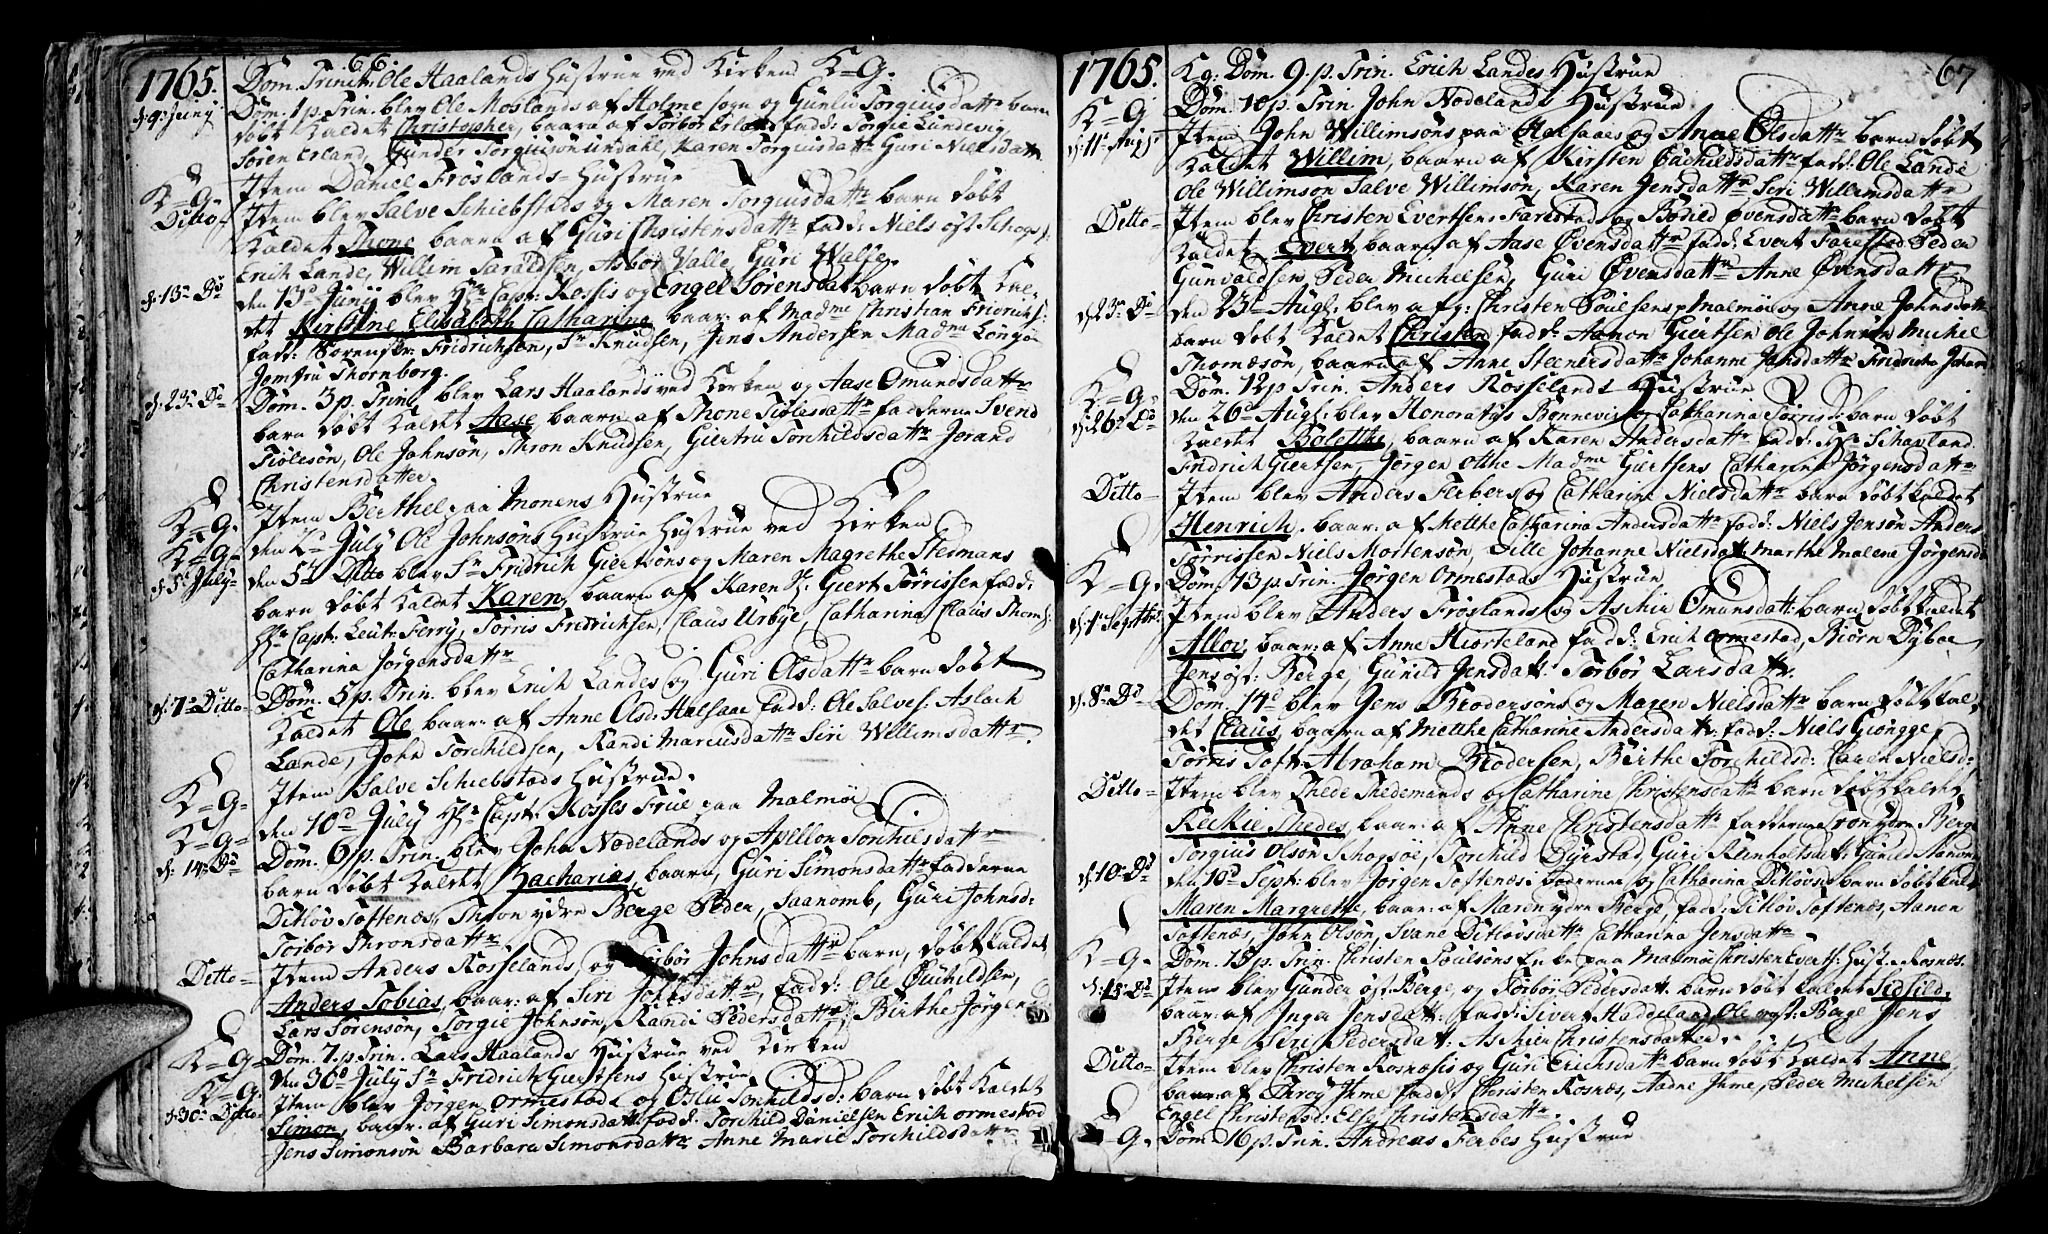 1765.
66.
Dom. Trinit: Ole Haalands Hustrue ved Kirken K=G.
d. 9de Junij
Dom. 1 p. Trin. blev Ole Moslands af Holme sogn og Gunlu Torgiusdattr barn
døbt kaldet Christopher, baaren af Torbor Erland fadd: Torgie Lundevig
Søren Erland, Gunder Torguson undahl, Karen Torguisdattr Guri Nielsdattr
K=G.
Item Daniel Frøslands Hustrue
Ditto
Item blev Salve Schiebstads og Maren Torguisdattr barn døbt
kaldet Thone baarn af Guri Christensdattr fadd: Niels øst Schogs:
Erich Lande, Willim Taraldsen, Asbor Valle, Guri Walle.
d. 13 Do
den 13d Junij blev Hr Capt: Rossis og Engel Sørensdat barn døbt kal-
det Kirstine Elisabeth Catharina baar: af Madme Christian Fridrichs:
fadd: Sorenskr: Fridrichsen, Sr Knudsen, Jens Andersen Madme
Jomfru Thornborg.
d. 23 Do
Dom. 3 p. Trin. blev Lars Haalands ved Kirken og Aase Omundsdattr
barn døbt kaldet Aase baarn af Thone Tiølesdattr fadderne Svend
Tiølesøn, Ole Johnsøn, Thron Knudsen, Giertru Torchildsdattr Jorand
Christensdatter.
K=G.
Item Berthel paa Monens Hustrue
K=G.
den 2d July Ole Johnsøns Hustrue ved Kirken
d. 5 July
den 5te Ditto blev Sr Fridrich Giertsøns og Maren Magrethe Stermans
barn døbt kaldet Karen baarn af Karen Giert Tørrissen fadd:
Hr Capt: Leut: Ferry, Tørris Fridrichsen, Claus Urbye, Catharina Claus Thoms:
Catharina Jørgensdattr
d. 7 Ditto
Dom. 5 p. Trin. blev Erich Landes og Guri Olsdattr barn døbt
kaldet Ole baar: af Anne Olsd: Halsaae fadd: Ole Salves: Aslach
Lande, John Torchildsen, Randi Marcusdattr Siri Willimsdattr
K=G.
Item Salve Schiebstads Hustrue.
K=G.
den 10d July Hr Capt: Rosses Frue paa Malmøe
d. 14 Do
Dom. 6 p. Trin. blev John Nodelands og Apellon Torchilsdattr
barn døbt kaldet Zacharias baarn, Guri Simonsdattr fadderne
Ditløv Toftenæs, Thron ydre Berge Peder, Saanomb, Guri Johnsd:
Torbor Thronsdattr
Ditto
Item Anders Rosselands, og Torbor Johnsdattr barn, døbt kaldet
Anders Tobias, baar: af Siri Johnsdattr, fadd: Ole Buchildsen,
Lars Sørensøn, Torgie Johnsøn, Randi Pedersdattr, Birthe Jørgens
K=G.
Dom. 7. p. Trin. Lars Haalands Hustrue ved Kirken
K=G.
den 30d July Sr Fridrich Giertsens Hustrue
d 30 Ditto
Item blev Jørgen Ormestads og Oslu Torchildsd: barn døbt kaldet
Simon, baar: af Guri Simonsdatr fadd: Torchild Danielsen Erich Ormestad
Jens Simonsøn Barbara Simonsdattr Anne Marie Torchildsdattr
1765.
67
K g: Dom. 9. p. Trin. Erich Landes Hustrue
K=G
Dom. 10 p. Trin John Nodelands Hustrue
d: 11 Augs:
Item John Willimsøns paa Halsaaes og Anne Olsdattr barn døbt
kaldet Willim, baarn af Kirsten Bachildsdattr fadd: Ole Lande
Ole Willimson Salve Willimsøn, Karen Jensdattr Siri Willimsdattr
Ditto
Item blev Christen Evertsens Farestad og Bodild Øvensdattr barn døbt
kaldet Evert baar: af Aase Øvensdattr fadd: Evert Farestad Peder
Gunvaldsen, Peder Michelsen, Guri Øvensdattr Anne Øvensdattr
d. 23 Do
den 23d Augl: blev afg: Christen Poulsens Malmøe og Anne Johnsdattr
barn døbt kaldet Christen fadd: Aanon Giertsen Ole Johnsen Michel
Thomesøn, baarn af Anne Steenersdattr Johanne Jansdattr Fridrich Johan
K=G.
Dom. 12 p. Trin. Anders Rosselands Hustrue
d. 26 Do
den 26d Augl: blev Honoratus Bonnevie og Catharina Tørrisd: barn døbt
kaldet Bolethe, baarn af Karen Andersdattr fadd: Hr Schavland
Fridrich Giertsen, Jørgen Otthe Madme Giertsens Catharina Jørgensdattr
Ditto
Item blev Anders Ferbers og Catharine Nielsdattr barn døbt kaldet
Henrich. baar: af Metthe Catharina Andersdattr fadd: Niels Jensøn Anders
Tørrissen Niels Mortensøn, Cille Johanne Nielsdat: Marthe Malene Jørgensda
K=G.
Dom. 13 p. Trin. Jørgen Ormestads Hustrue
d. 1 Septbr:
Item blev Anders Frøslands og Aschie Omunsdatt: barn døbt kaldet
Allov, baar: af Anne Hiorteland fadd: Erich Ormestad, Biørn Dyboe,
Jens øst: Berge, Gunild Jensdatt: Torbor Larsdattr.
d. 8 Do
Dom. 14d blev Jens Brodersøns og Maren Nielsdattr barn døbt kal-
det Claus, baarn af Metthe Catharine Andersdattr fadd: Niels Giøngge,
Tørris Toft Abraham Brodersen, Birthe Torchildsd: Caren Nielsd:
Ditto
Item blev Thede Thedemands og Catharine Christensdattr barn døbt kaldet
Reckie Thedes, baar: af Anne Christensdattr fadderne Tron ydre Berge
Torgius Olsøn Schogsøe, Torchild Dyrstad, Guri Reinholtsdat: Gunild Aanons
d. 10 Do
den 10d Sept: blev Jørgen Toftenæs i boderne og Catharina Ditløvsd: barn døbt kald:
Maren Margrethe, baar: af Maren ydre Berge, fadd: Ditløv Toftenæs, Aanon
Toftenæs, John Olsøn, Svane Ditlovsdattr Catharina Jensdattr
K=G.
Dom. 15 p. Trin. Christen Poulsøns Enke paa Malmøe Christen Everts: Hust: Rosnæs.
d. 15 Do
Item blev Gunder øst: Berge, og Torbor Pedersdat: barn døbt kaldet Sidsild,
baar: af Inga Jensdatt: fadd: Siver Haddeland Ole øst: Berge Jens
Berge Siri Pedersdat: Aschie Christensdatter.
Ditto
Item blev Christen Rosnæsis og Guri Erichsdattr barn døbt kaldet Anne
baarn: af Throy Ihme fadd: Christen Rosnæs, Aadne Ihme, Peder Michelsen
Engel Christensd: Else Christensdattr.
K=G.
Dom. 16 p. Trin. Andreas Ferbes Hustrue